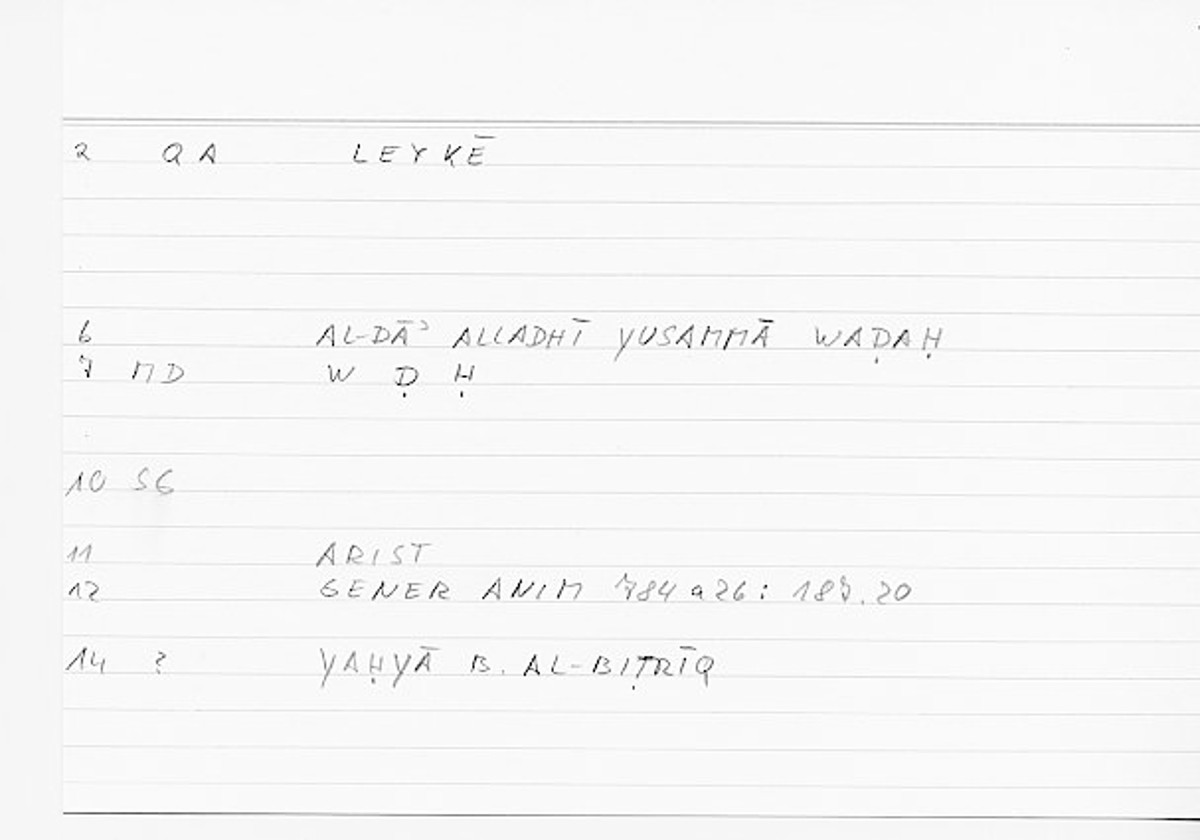 2 QA LEYḲĒ
6 AL-DĀʾ ALLADHĪ YUSAMMĀ WAḌAḤ
7 MD W Ḍ Ḥ
10 SG
11 ARIST
12 GENER ANIM 784 a 26 : 187.20
14 ? YAḤYĀ B. AL-BIṬRĪQ